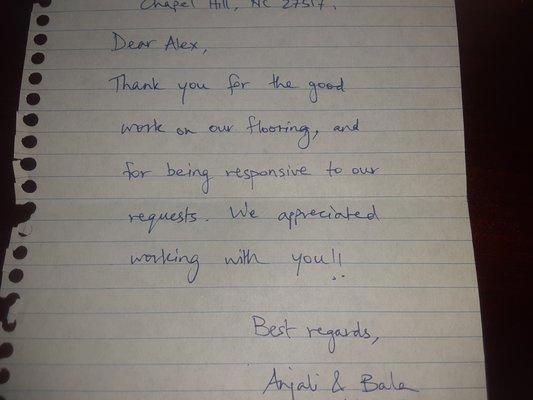 Chapel Hill, NC 27517.
Dear Alex,
Thank you for the good
work on our flooring, and
for being responsive to our
requests. We appreciated
working with you!!
Best regards,
Anjali & Bala